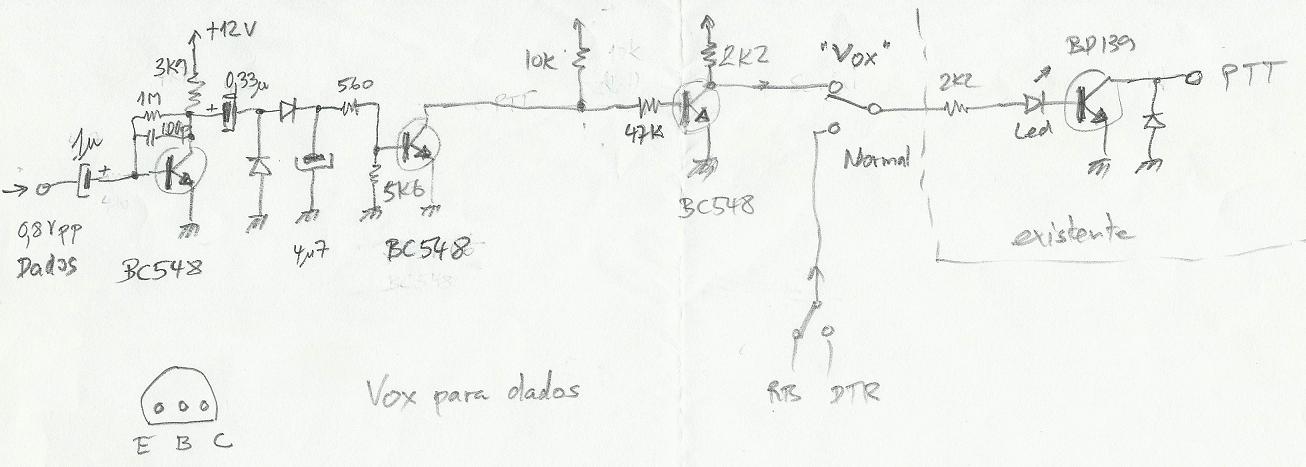 +12V
3K9
0,33µ
1M
100p
1µ
+
+
560
5K6
4µ7
0,8Vpp
Dados
BC548
BC548
10k
47K
2K2
BC548
"Vox"
Normal
2K2
Led
BD139
PTT
existente
DTR
Vox para dados
E B C